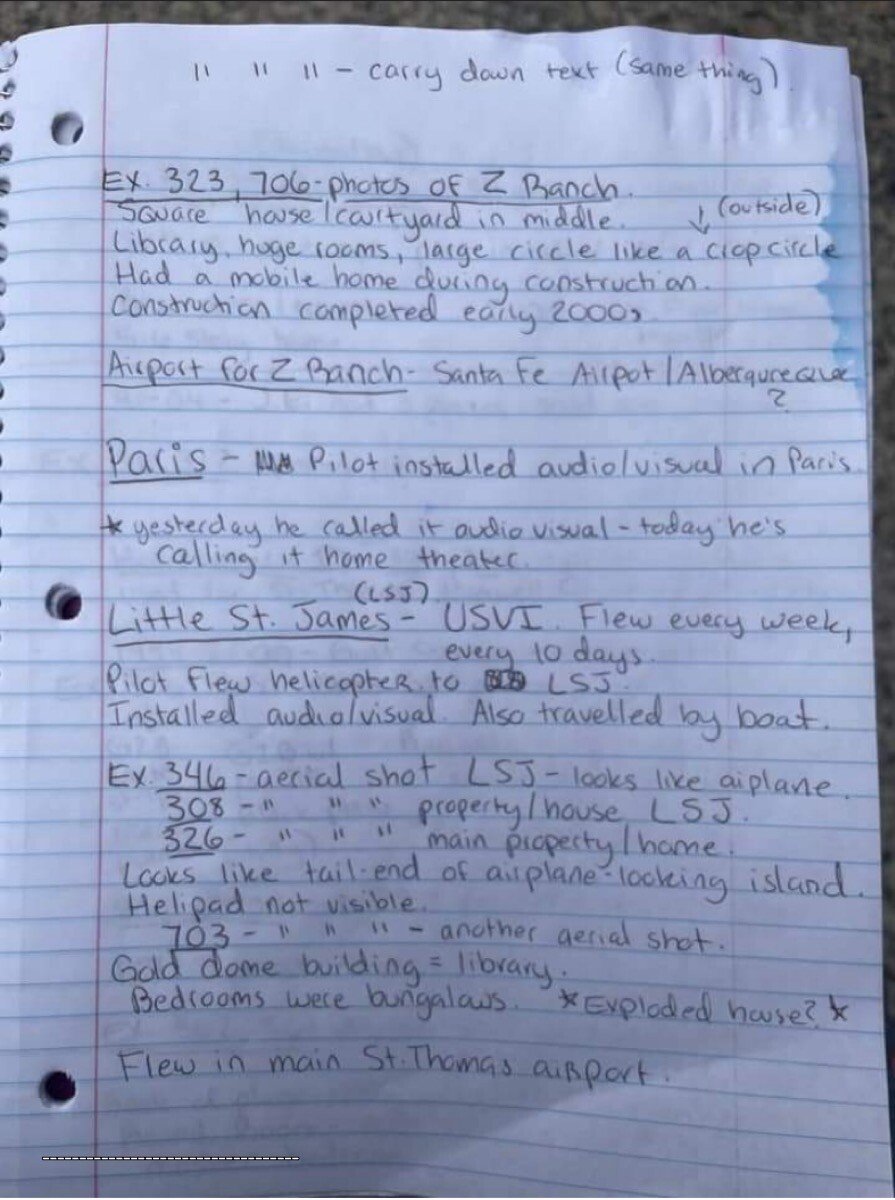 " " " - carry down text (same thing).
Ex. 323, 706 - photos of Z Ranch.
Square house/courtyard in middle. ↓ (outside)
Library, huge rooms, large circle like a crop circle
Had a mobile home during construction.
Construction completed early 2000s
Airport for Z Ranch - Santa Fe Airpot/Alberqureque
?
Paris - Pilot installed audio/visual in Paris
* yesterday he called it audio visual - today he's
calling it home theater.
(LSJ)
Little St. James - USVI. Flew every week,
every 10 days.
Pilot flew helicopter to LSJ.
Installed audio/visual. Also travelled by boat.
Ex. 346 - aerial shot LSJ - looks like aiplane.
308 - " " " property/house LSJ.
326 - " " " main property/home.
Looks like tail-end of airplane-looking island.
Helipad not visible.
703 - " " " - another aerial shot.
Gold dome building = library.
Bedrooms were bungalows. *Exploded house? *
Flew in main St. Thomas airport.